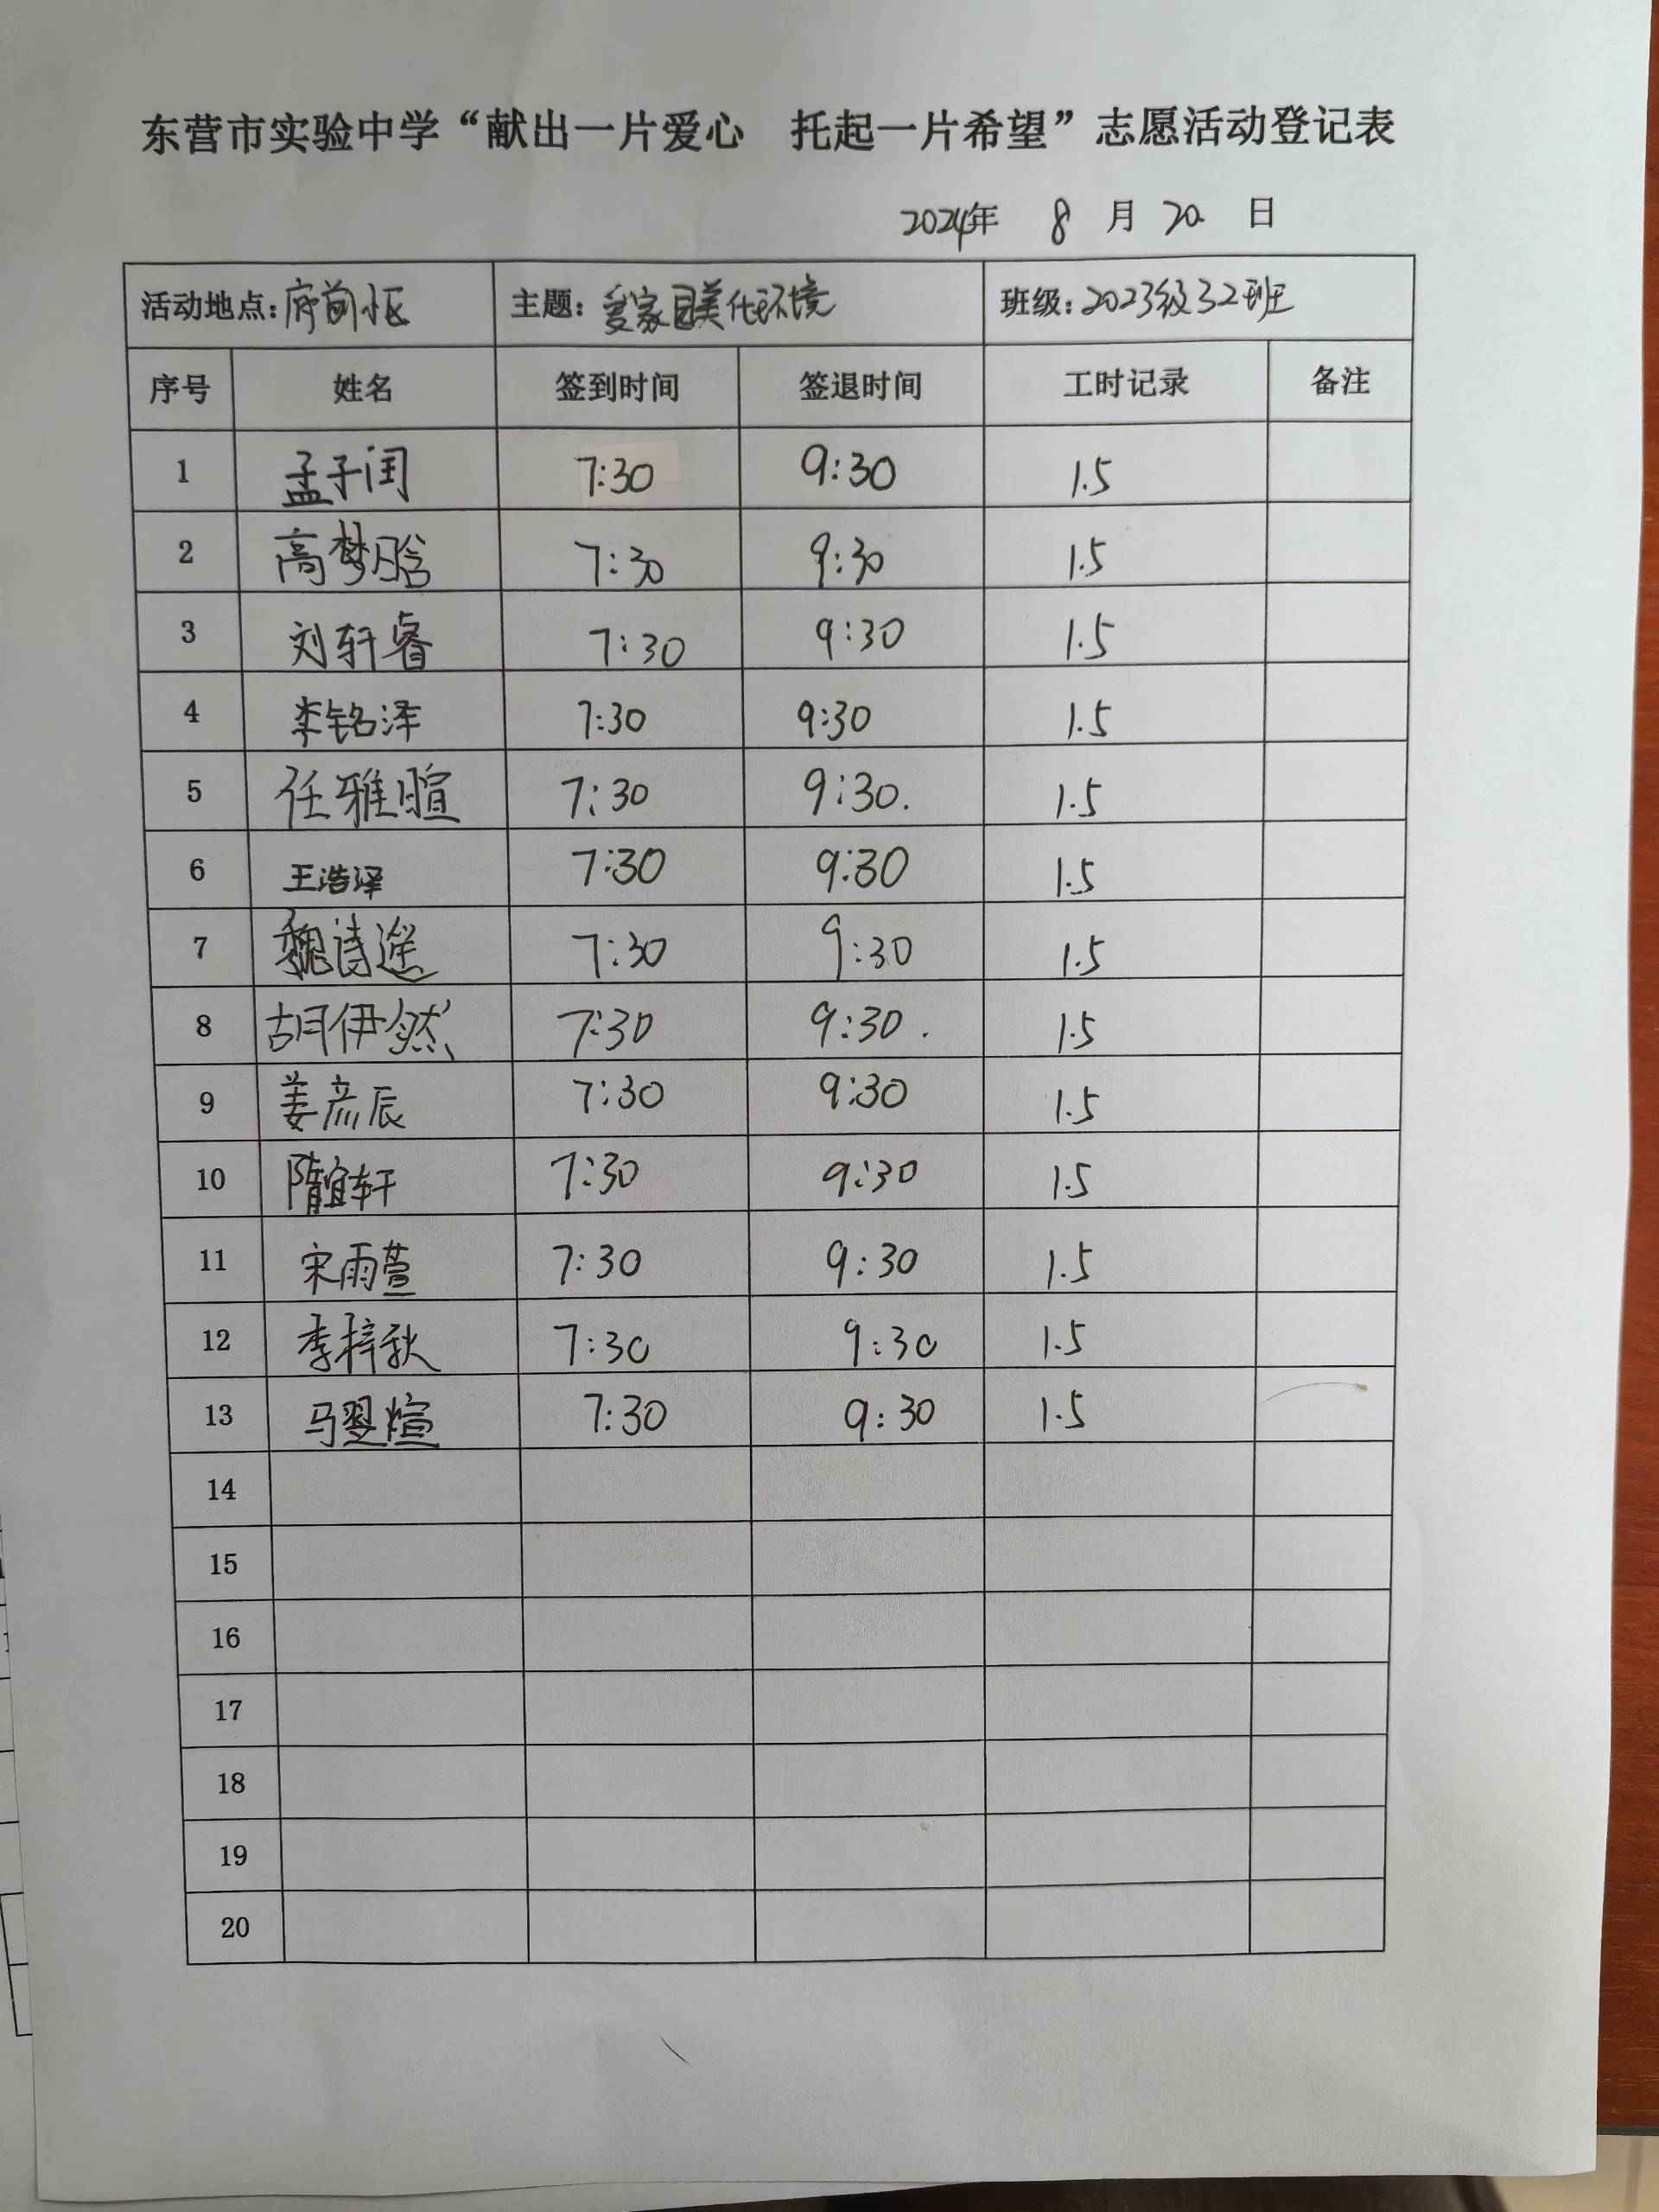 东营市实验中学“献出一片爱心 托起一片希望”志愿活动登记表
2024年 8 月 20 日
活动地点:府前小区 主题:爱家园美化环境 班级:2023级32班
序号 姓名 签到时间 签退时间 工时记录 备注
1 孟子闰 7:30 9:30 1.5
2 高梦晗 7:30 9:30 1.5
3 刘轩睿 7:30 9:30 1.5
4 李铭泽 7:30 9:30 1.5
5 任雅暄 7:30 9:30. 1.5
6 王浩泽 7:30 9:30 1.5
7 魏诗遥 7:30 9:30 1.5
8 胡伊然 7:30 9:30. 1.5
9 姜彦辰 7:30 9:30 1.5
10 隋宜轩 7:30 9:30 1.5
11 宋雨萱 7:30 9:30 1.5
12 李梓秋 7:30 9:30 1.5
13 马翌煊 7:30 9:30 1.5
14
15
16
17
18
19
20